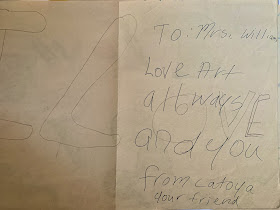 To: Mrs. William
Love Art
allways
and you
from Latoya
your friend